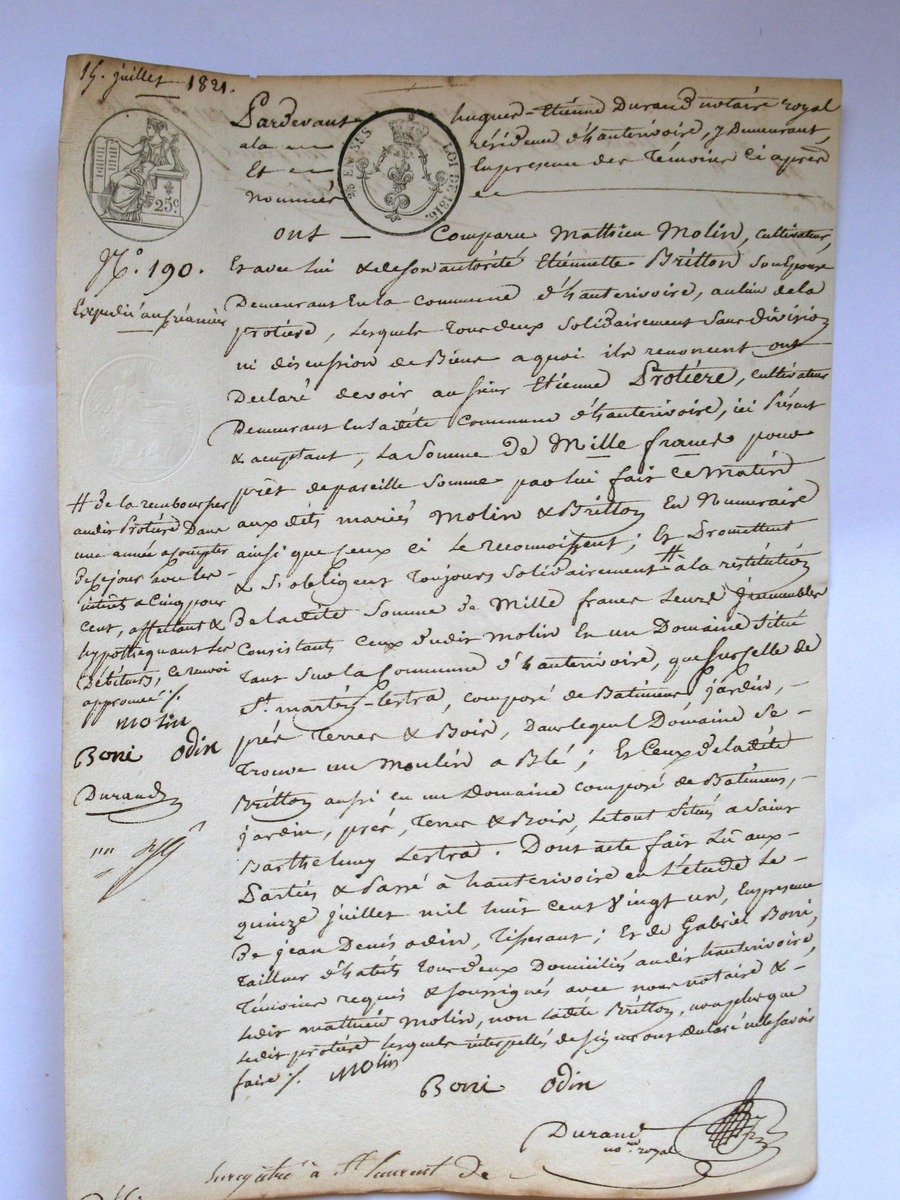 15. juillet 1821.
Pardevant hugues-Etienne Durand notaire royal
a la résidence d'hauterivoire, y Demeurant,
Et En presence des Témoins Ci après
nommés
25 EN SUS
LOI DE 1816.
25c.
ont Comparu Mathieu Molin, cultivateur,
N.º 190.
Et avec lui & de son autorité Etiennette Britton Son Epouse
Demeurant En la commune d'hauterivoire, au lieu de la
protière, Lesquels Tous deux Solidairement Sans division
ni discussion de Biens a quoi ils renoncent ont
Declaré devoir au sieur Etienne Protière, cultivateur
Demeurant En Ladite Commune d'hauterivoire, ici Présent
& acceptant, La Somme de Mille francs pour
prêt de pareille Somme par lui fait Ce Matin
aux dits mariés Molin & Britton En Numeraire
ainsi que Ceux ci Le reconnoissent; Et Promettent
& S'obligent Toujours Solidairement # a la restitution
De la dite Somme de Mille francs Leurs jmmeubles
Consistants Ceux dudit Molin En un Domaine Situé
Tant Sur La Commune d'hauterivoire, que Sur Celle de
St. martin-Lestra, composé de Batimens, jardin, -
prés Terres & Bois, Dans Lequel Domaine Se -
Trouve un Moulin a Blé; Et Ceux de la dite
Britton aussi En un Domaine composé de Batimens, -
jardin, prés, Terres & Bois, Le tout Situé a Saint
Barthelemy Lestra. Dont acte fait Lu aux -
Parties & Passé à hauterivoire en L'étude Le -
quinze juillet mil huit Cent Vingt un, En presence
De jean Denis odin, Tisserant; Et de Gabriel Boni,
Tailleur d'habits Tous deux Domiciliés audit hauterivoire,
Témoins requis & soussignés avec nous notaire & -
Ledit mathieu Molin, non Ladite Britton, non plus que
Ledit protière Lesquels interpellés de signer ont declaré ne le Savoir
faire ./. Molin
Boni Odin
Durand
no.re royal
# De la rembourser
audit Protière Dans
une année a Compter
De Ce jour avec Les -
intérêts a Cinq pour
Cent, affectant &
hypothequant Les
Débiteurs, Ce renvoi
approuvé ./.
Molin
Boni Odin
Durand
Enregistré à St. Laurent de